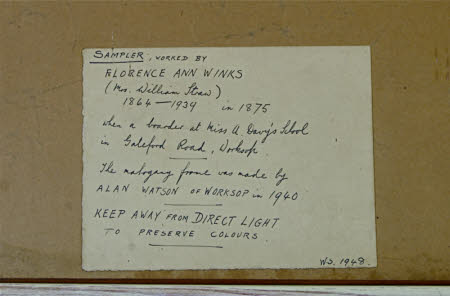 SAMPLER, WORKED BY
FLORENCE ANN WINKS
(Mrs. William Straw)
1864–1939 in 1875
when a boarder at Miss A. Davy's School
in Gateford Road, Worksop.
The mahogany frame was made by
ALAN WATSON OF WORKSOP in 1940
KEEP AWAY FROM DIRECT LIGHT
TO PRESERVE COLOURS.
W.S. 1948.